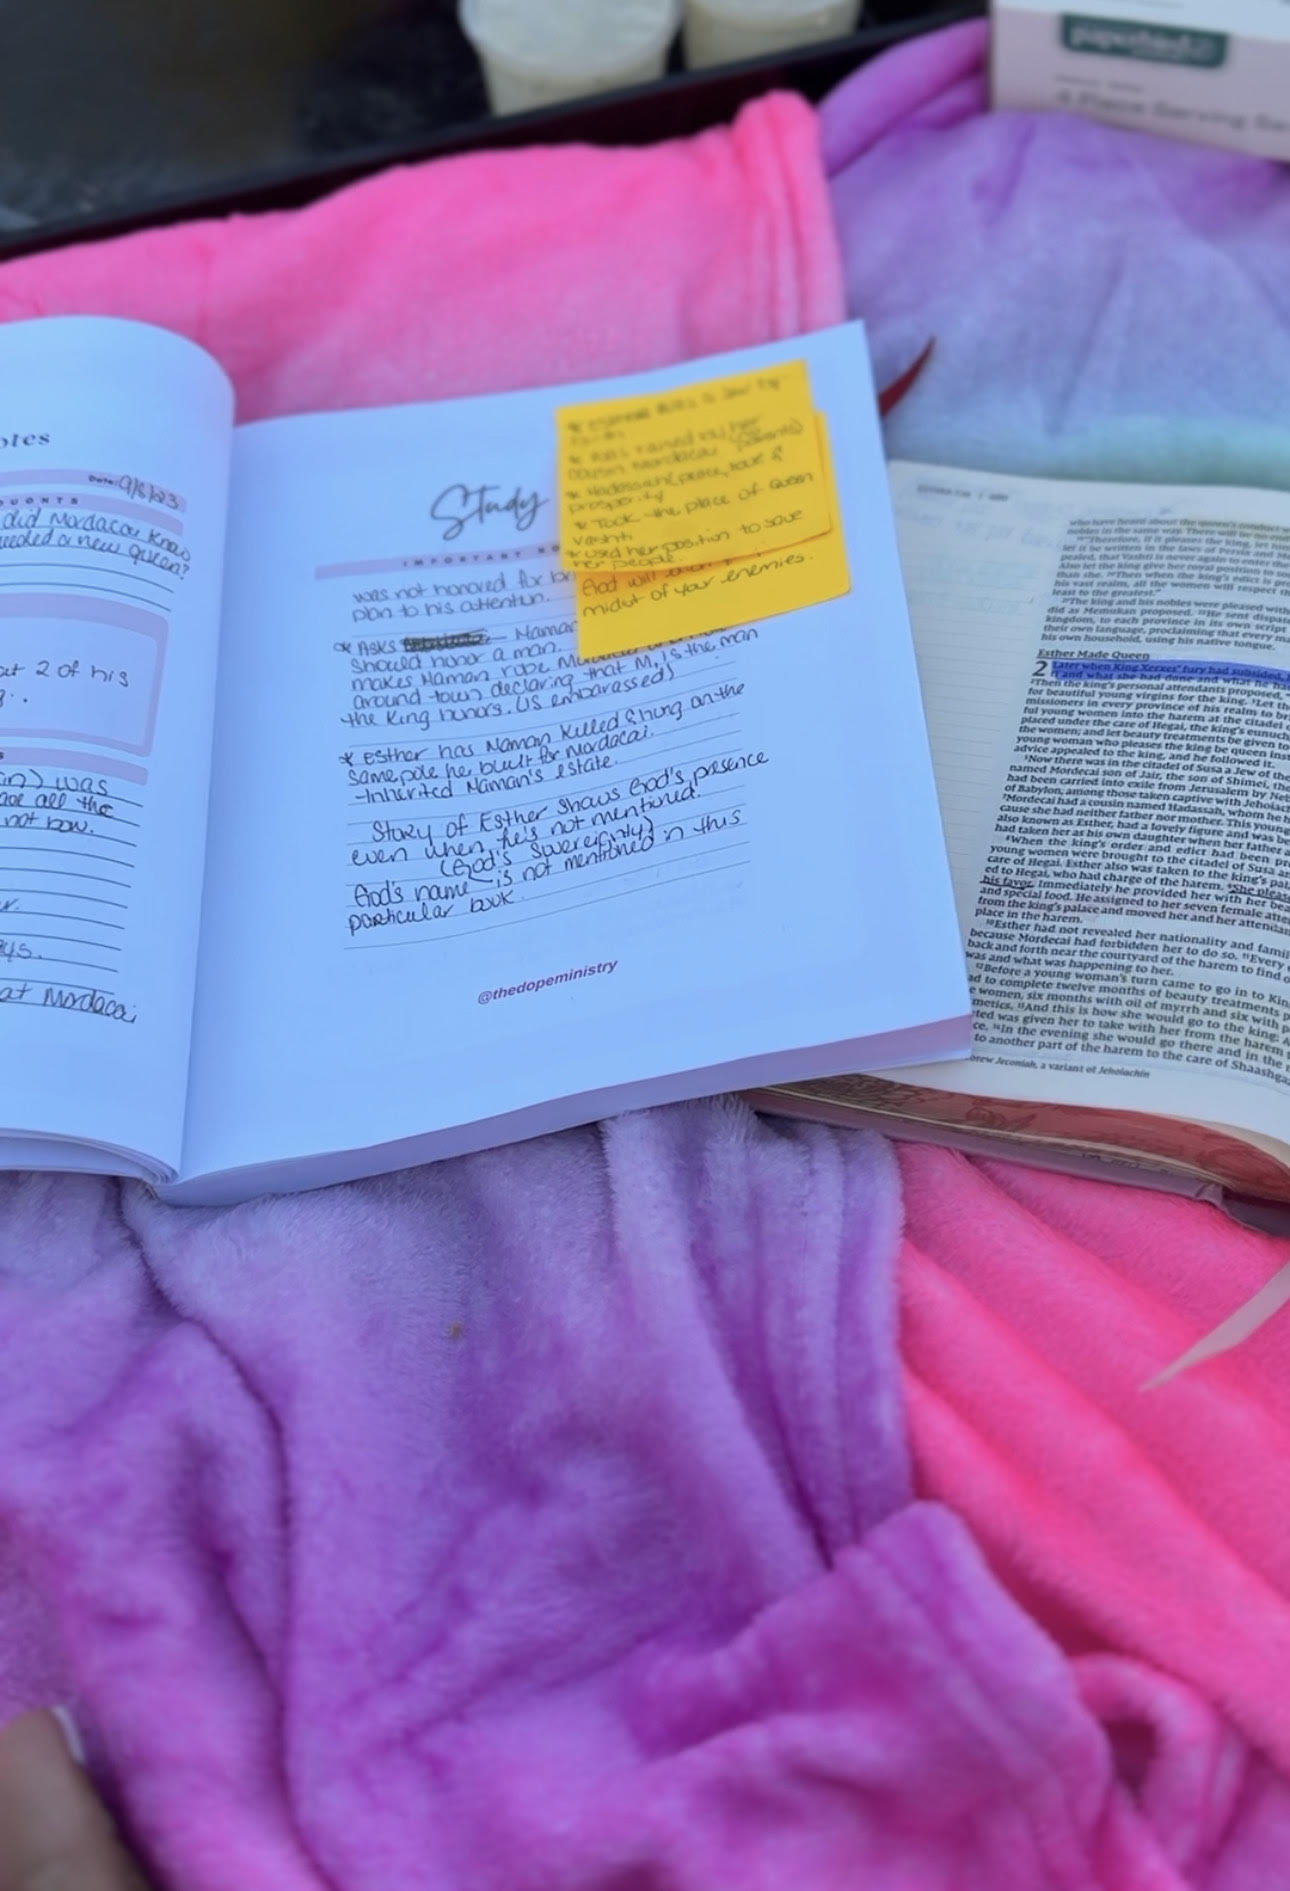 4 Piece Serving
otes
Date: 9/8/23
OUGHTS
did Mordacai Know
needed a new queen?
out 2 of his
was
all the
not bow.
at Mordacai
Study
IMPORTANT NO
was not honored for
plan to his attention.
* Asks Haman
should honor a man.
makes Haman robe
around town declaring that M. is the man
the King honors. (is embarassed)
* Esther has Haman Killed & hung on the
same pole he built for Mordacai.
-Inherited Haman's estate.
Story of Esther shows God's presence
even when he's not mentioned!
(God's Sovereignty)
God's name is not mentioned in this
particular book.
@thedopeministry
* was raised by her
cousin Mordacai (parents)
* Hadassah (peace, love &
prosperity
* Took the place of Queen
Vashti
* used her position to save
her people.
God will
midst of your enemies.
who have heard about the queen's conduct
nobles in the same way. There will be no
"Therefore, if it pleases the king, let
let it be written in the laws of Persia and
pealed, that Vashti is never again to enter the
Also let the king give her royal position to
than she. Then when the king's edict is
his vast realm, all the women will respect
least to the greatest."
The king and his nobles were pleased with
did as Memukan proposed. He sent
kingdom, to each province in its own script
their own language, proclaiming that every
his own household, using his native tongue.
Esther Made Queen
2 Later when King Xerxes' fury had subsided,
and what she had done and what he
Then the king's personal attendants proposed,
for beautiful young virgins for the king. Let
missioners in every province of his realm to
ful young women into the harem at the citadel
placed under the care of Hegai, the king's eunuch
the women; and let beauty treatments be given to
young woman who pleases the king be queen
advice appealed to the king, and he followed it.
Now there was in the citadel of Susa a Jew of the
named Mordecai son of Jair, the son of Shimei, the
had been carried into exile from Jerusalem by
of Babylon, among those taken captive with
Mordecai had a cousin named Hadassah, whom he
cause she had neither father nor mother. This young
also known as Esther, had a lovely figure and was
had taken her as his own daughter when her father
When the king's order and edict had been
young women were brought to the citadel of Susa
care of Hegai. Esther also was taken to the king's
ed to Hegai, who had charge of the harem. She
his favor. Immediately he provided her with her
and special food. He assigned to her seven female
from the king's palace and moved her and her
place in the harem.
Esther had not revealed her nationality and
because Mordecai had forbidden her to do so. Every
back and forth near the courtyard of the harem to find
was and what was happening to her.
Before a young woman's turn came to go in to
ad to complete twelve months of beauty treatments
e women, six months with oil of myrrh and six with
metics. And this is how she would go to the king:
ted was given her to take with her from the harem
ce. In the evening she would go there and in the
to another part of the harem to the care of
brew Jeconiah, a variant of Jehoiachin